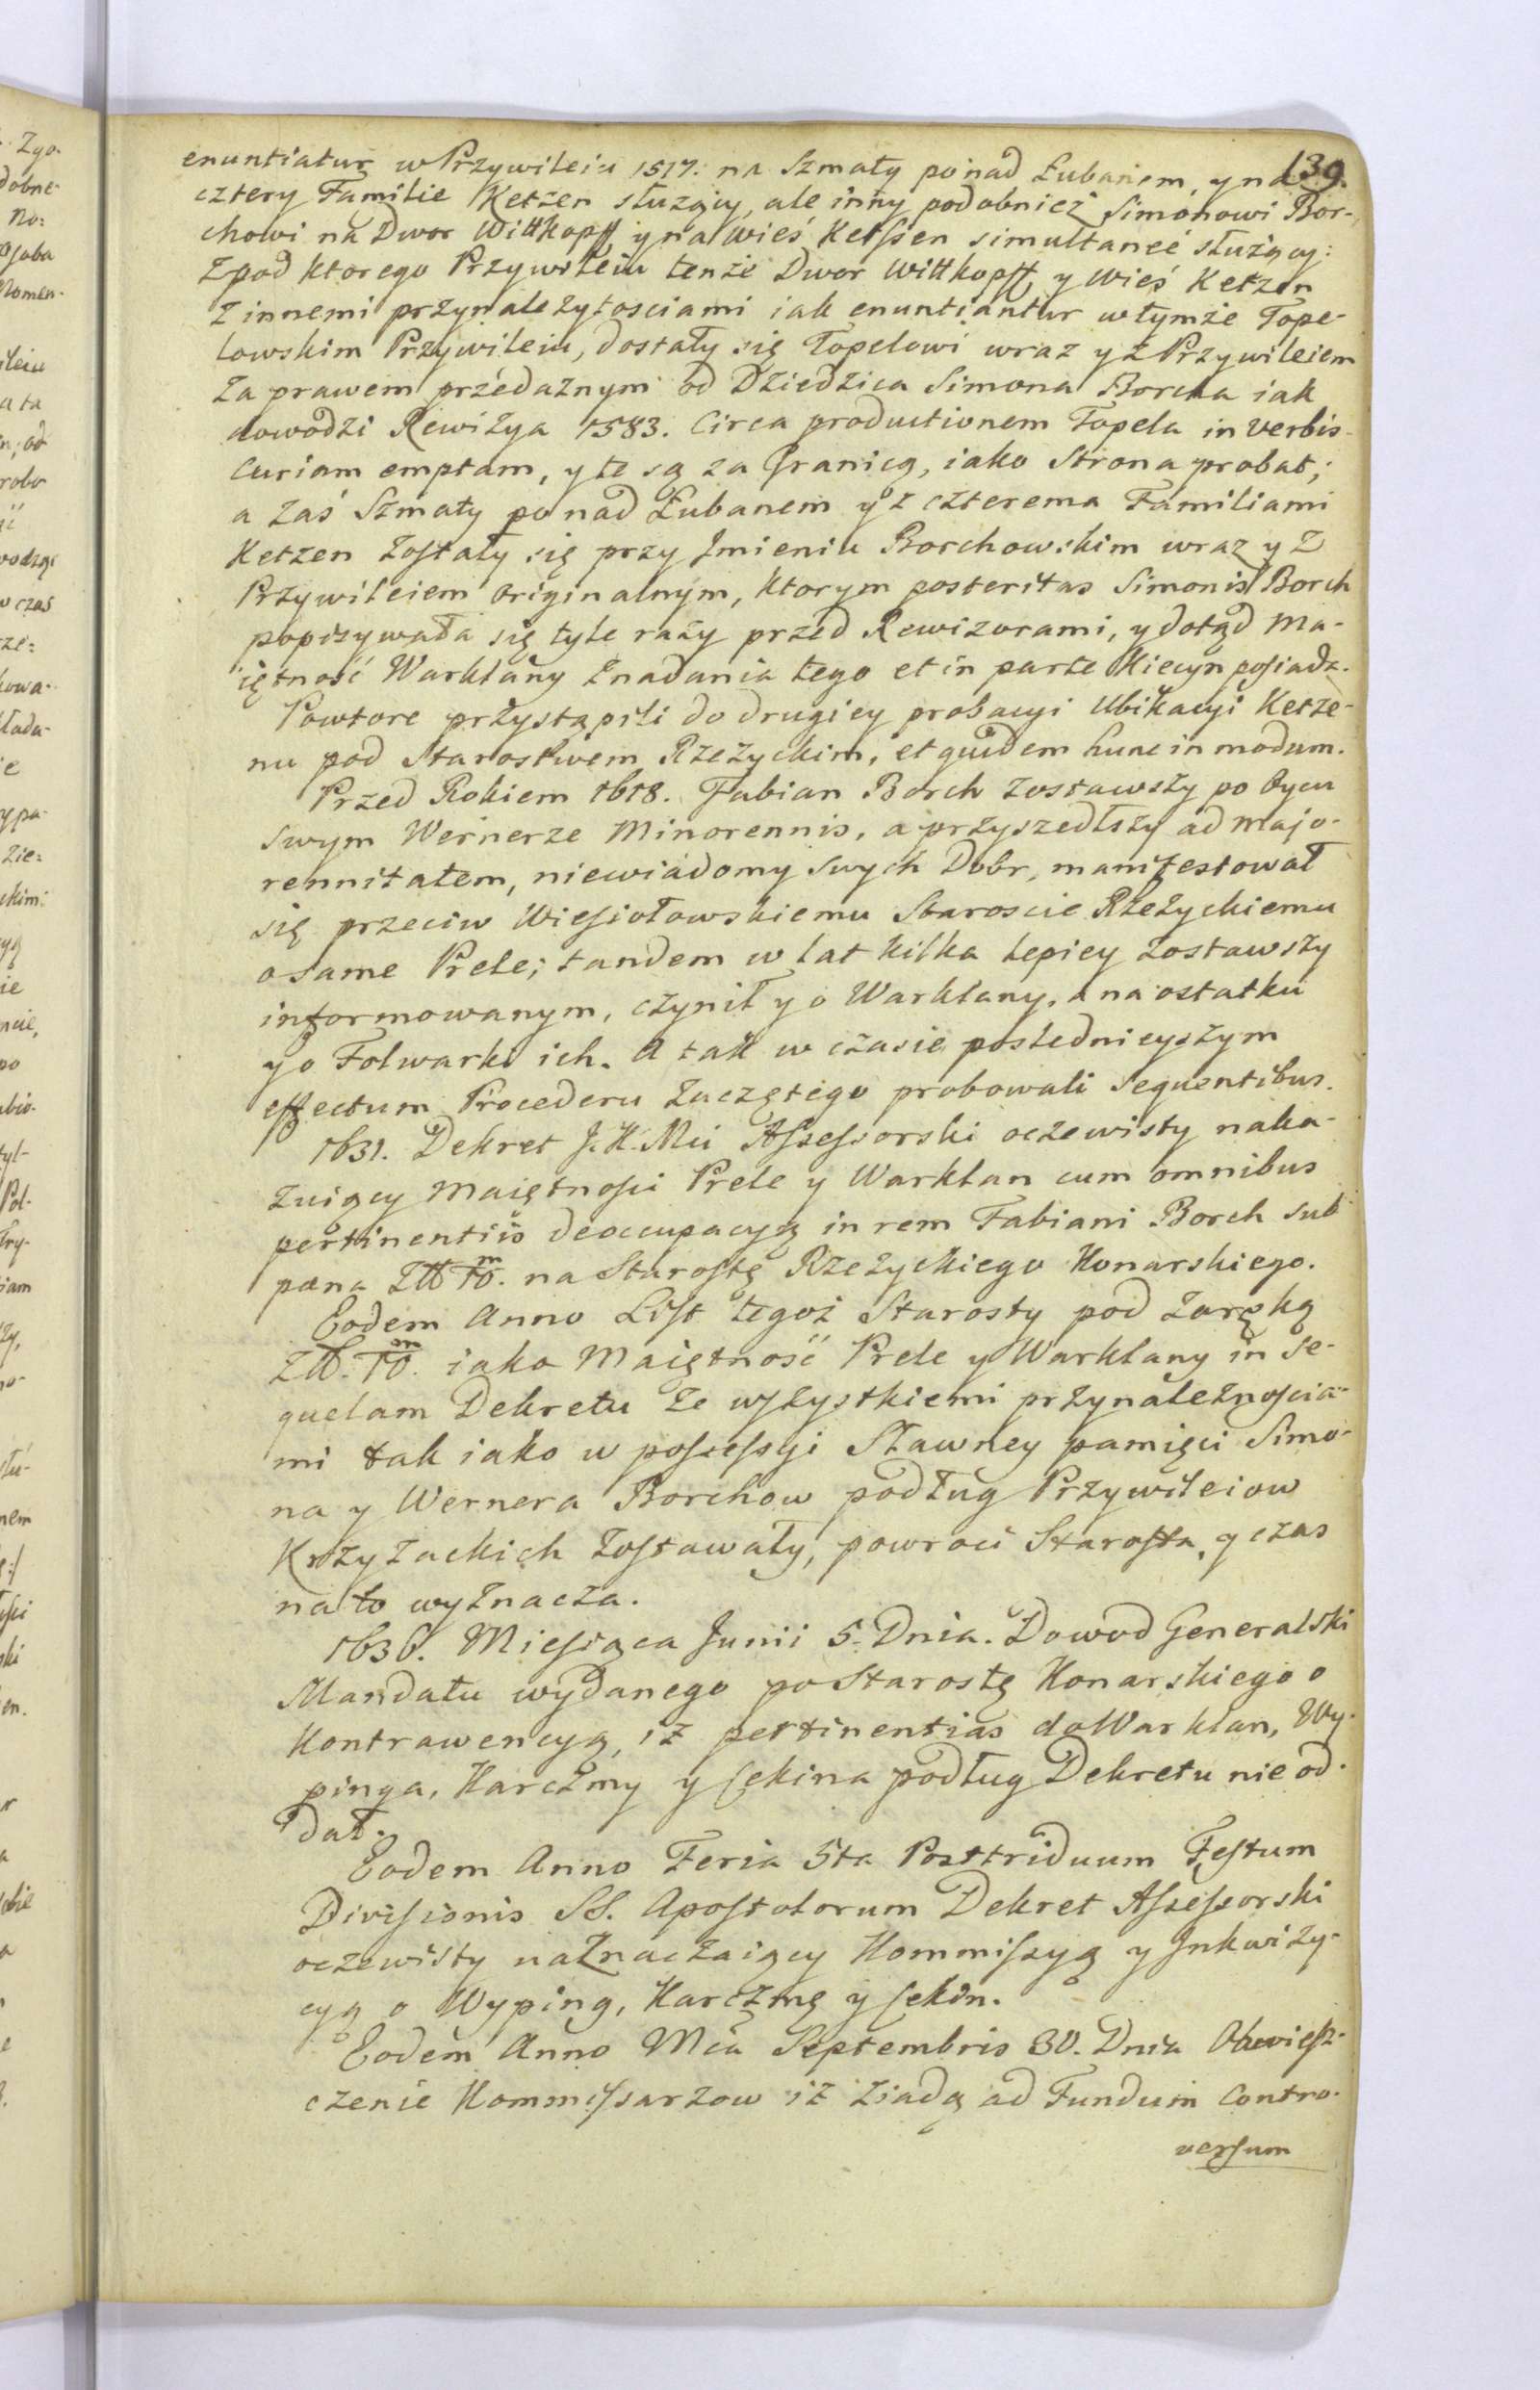 139.
enuntiatur w Przywileiu 1517. na Szmaty ponad Łubanem, y na
cztery Familie Ketzen służący, ale inny podobnież Simonowi Bor-
chowi na Dwor Wittkopff y na wieś Ketſsen simultaneé służący:
Zpod ktorego Przywileiu tenże Dwor Wittkopff y wieś Ketzen
z innemi przynależytosciami iak enuntiantur w tymże Tope-
lowskim Przywileiu, dostały się Topelowi wraz y z Przywileiem
za prawem przedażnym od Dziedzica Simona Borcha iak
dowodzi Rewizya 1583. Circa productionem Topela in verbis
Curiam emptam, y te są za Granicą, iako Strona probat;
a zaś Szmaty ponad Łubanem y z czterema Familiami
Ketzen zoſtały się przy Jmieniu Borchowskim wraz y z
Przywileiem originalnym, ktorym posteritas Simonis Borch
popisywała się tyle razy przed Rewizorami, y dotąd Ma-
iętność Warklany z nadania tego et in parte Kiecyn poſiada.
Powtore przystąpili do drugiey probacyi Ubikacyi Ketze-
nu pod Starostwem Rzeżyckim, et quidem hunc in modum.
Przed Rokiem 1618. Fabian Borch zostawszy po Oycu
swym Wernerze Minorennis, a przyszedłszy ad majo-
rennitatem, niewiadomy swych Dobr, manifestował
się przeciw Wieſiołowskiemu Staroscie Rzeżyckiemu
o same Prele; tandem w lat kilka lepiey zostawszy
informowanym, czynił y o Warklany, a na ostatku
y o Folwarki ich. A tak w czasie poslednieyszym
effectum Procederu zaczętego probowali sequentibus.
1631. Dekret J. K. Mci Aſseſsorski oczewisty naka-
zuiący Maiętnoſci Prele y Warklan cum omnibus
pertinentiis deoccupacyą in rem Fabiani Borch sub
pæna Złł 10.m na Staroſtę Rzeżyckiego Konarskiego.
Eodem Anno Liſt tegoż Starosty pod zaręką
Złł. 10.m iako Maiętność Prele y Warklany in se-
quelam Dekretu ze wſzyſtkiemi przynależnoſcia-
mi tak iako w poſseſsyi Sławney pamięci Simo-
na y Wernera Borchow podług Przywileiow
Krzyżackich zoſtawały, powroci Staroſta, y czas
na to wyznacza.
1636. Mieſiąca Junii 5. Dnia. Dowod Generalski
Mandatu wydanego po Starostę Konarskiego o
Kontrawencyą, iż pertinentias do Warklan, Wy-
pinga, Karczmy y ſekina podług Dekretu nie od-
dał.
Eodem Anno Feria 5ta Posttriduum Feſtum
Diviſionis SS. Apoſtolorum Dekret Aſseſsorski
oczewisty naznaczaiący Kommiſsyą y Jnkwizy-
cyą o Wyping, Karczmę y ſekin.
Eodem Anno Mca Septembris 30. Dnia Obwieſz-
czenie Kommiſsarzow iż ziadą ad Fundum Contro-
verſum